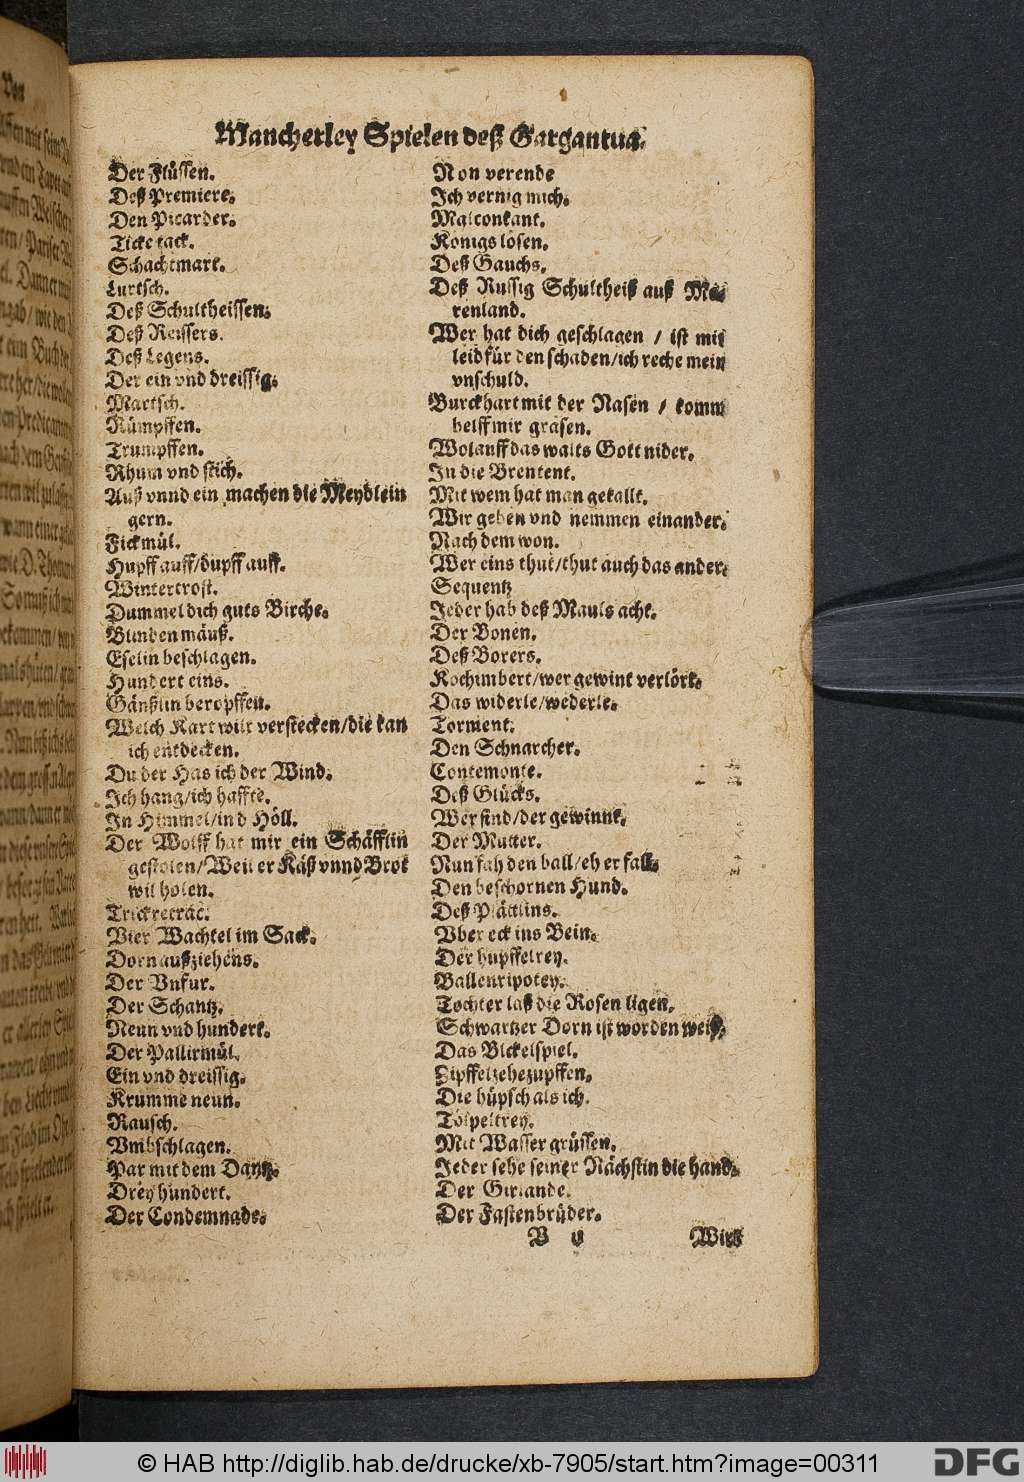 Mancherley Spielen deß Gargantua.
Der Flüssen.
Deß Premiere.
Den Picarder.
Ticke tack.
Schachtmatt.
Lurtsch.
Deß Schultheissen.
Deß Reissers.
Deß Legens.
Der ein vnd dreissig.
Martsch.
Rümpffen.
Trumpffen.
Rhum vnd stich.
Auß vnnd ein machen die Meydlein
gern.
Fickmül.
Hupff auff/dupff auff.
Wintertrost.
Dummel dich guts Birche.
Blinden mäuß.
Eselin beschlagen.
Hundert eins.
Gänßlin beropffen.
Welch Kart wilt verstecken/die kan
ich entdecken.
Du der Has ich der Wind.
Ich hang/ich haffte.
In Himmel/in d Höll.
Der Wolff hat mir ein Schäfflin
gestolen/Weil er Käß vnnd Brot
wil holen.
Trickretrac.
Vier Wachtel im Sack.
Dorn außziehens.
Der Vnfur.
Der Schantz.
Neun vnd hundert.
Der Pallirmül.
Ein vnd dreissig.
Krumme neun.
Rausch.
Vmbschlagen.
Par mit dem Dantz.
Drey hundert.
Der Condemnade.
Non verende
Ich vernig mich.
Malcontant.
Königs lösen.
Deß Gauchs.
Deß Russig Schultheiß auß Mo-
renland.
Wer hat dich geschlagen / ist mit
leid für den schaden/ich reche mein
vnschuld.
Burckhart mit der Nasen / komm
helff mir grasen.
Wolauff das walts Gott nider.
In die Brentent.
Mit wem hat man gekallt.
Wir geben vnd nemmen einander.
Nach dem won.
Wer eins thut/thut auch das ander.
Sequentz
Jeder hab deß Mauls acht.
Der Bonen.
Deß Borers.
Kochimbert/wer gewint verlört.
Das widerle/wederle.
Torment.
Den Schnarcher.
Contemonte.
Deß Glücks.
Wer find/der gewinnt.
Der Mutter.
Nun fah den ball/eh er fall.
Den beschornen Hund.
Deß Plättlins.
Vber eck ins Bein.
Der hupffelrey.
Ballenripotey.
Tochter laß die Rosen ligen.
Schwartzer Dorn ist worden weiß.
Das Bickelspiel.
Zipffelzehezupffen.
Die hüpsch als ich.
Tölpeltrey.
Mit Wasser grüssen.
Jeder sehe seiner Nächstin die hand.
Der Girlande.
Der Fastenbrüder.
V v Wirt
© HAB http://diglib.hab.de/drucke/xb-7905/start.htm?image=00311
DFG